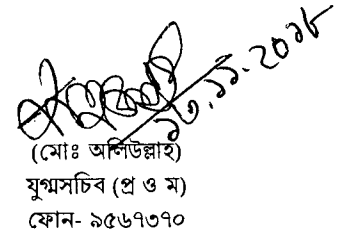 ১৩.১১.২০১৮
(মোঃ অলিউল্লাহ)
যুগ্মসচিব (প্র ও ম)
ফোন- ৯৫৬৭৩৭০